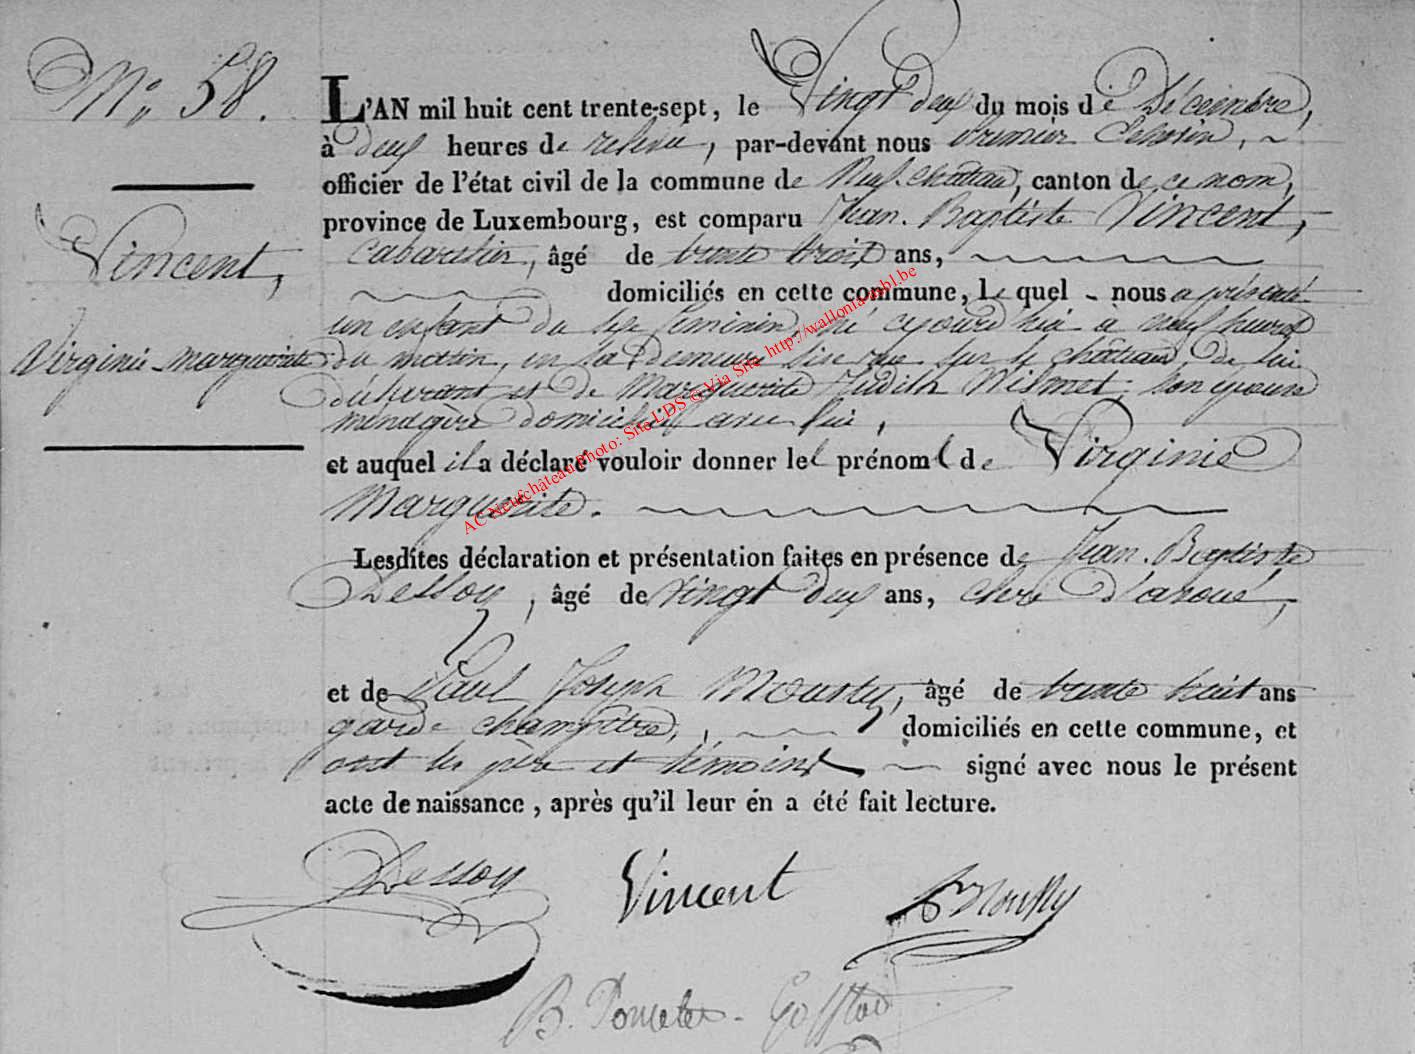 N° 58.
L'AN mil huit cent trente-sept, le Vingt deux du mois de Décembre,
à deux heures de relevée, par-devant nous premier Echevin,
officier de l'état civil de la commune de Neufchâteau, canton de ce nom,
province de Luxembourg, est comparu Jean-Baptiste Vincent,
Vincent,
cabaretier, âgé de trente trois ans,
domiciliés en cette commune, lequel nous a présenté
un enfant du sexe féminin, né cejourd'hui à neuf heures
Virginie Marguerite
du matin, en sa demeure sise rue sur le château de lui
déclarant et de Marguerite Judith Wilmet, son épouse
ménagère domiciliée avec lui,
et auquel il a déclaré vouloir donner les prénoms de Virginie
Marguerite.
Lesdites déclaration et présentation faites en présence de Jean-Baptiste
Dessoy, âgé de vingt deux ans, clerc d'avoué,
et de Paul Joseph Mousty, âgé de trente huit ans
garde champêtre, domiciliés en cette commune, et
ont les père et témoins signé avec nous le présent
acte de naissance, après qu'il leur en a été fait lecture.
Dessoy Vincent Mousty
AC Neufchâteau Photo: Site LDS © Via Site http://wallonia-asbl.be